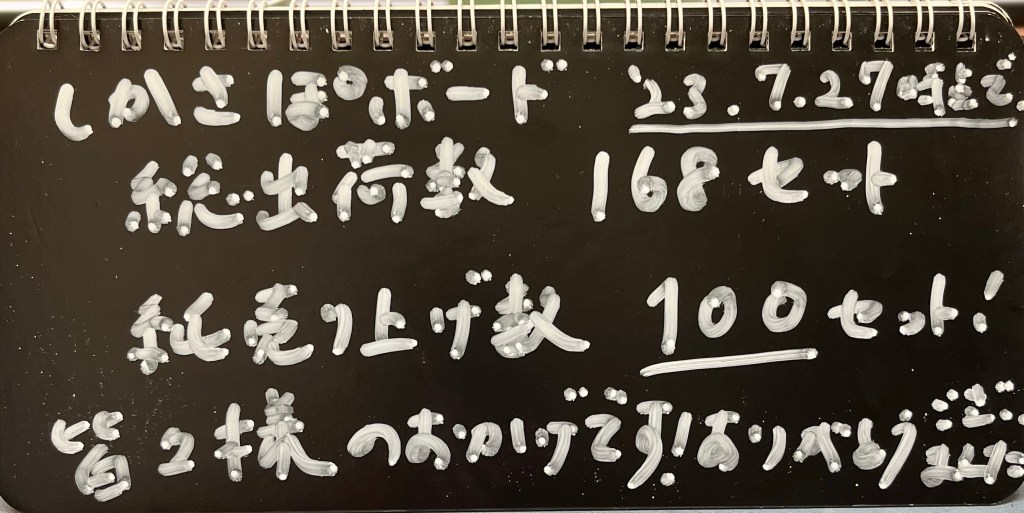 しかさぽボード 23.7.27
総出荷数 168セット
総売り上げ数 100セット!
皆々様のおかげです!ありがとう